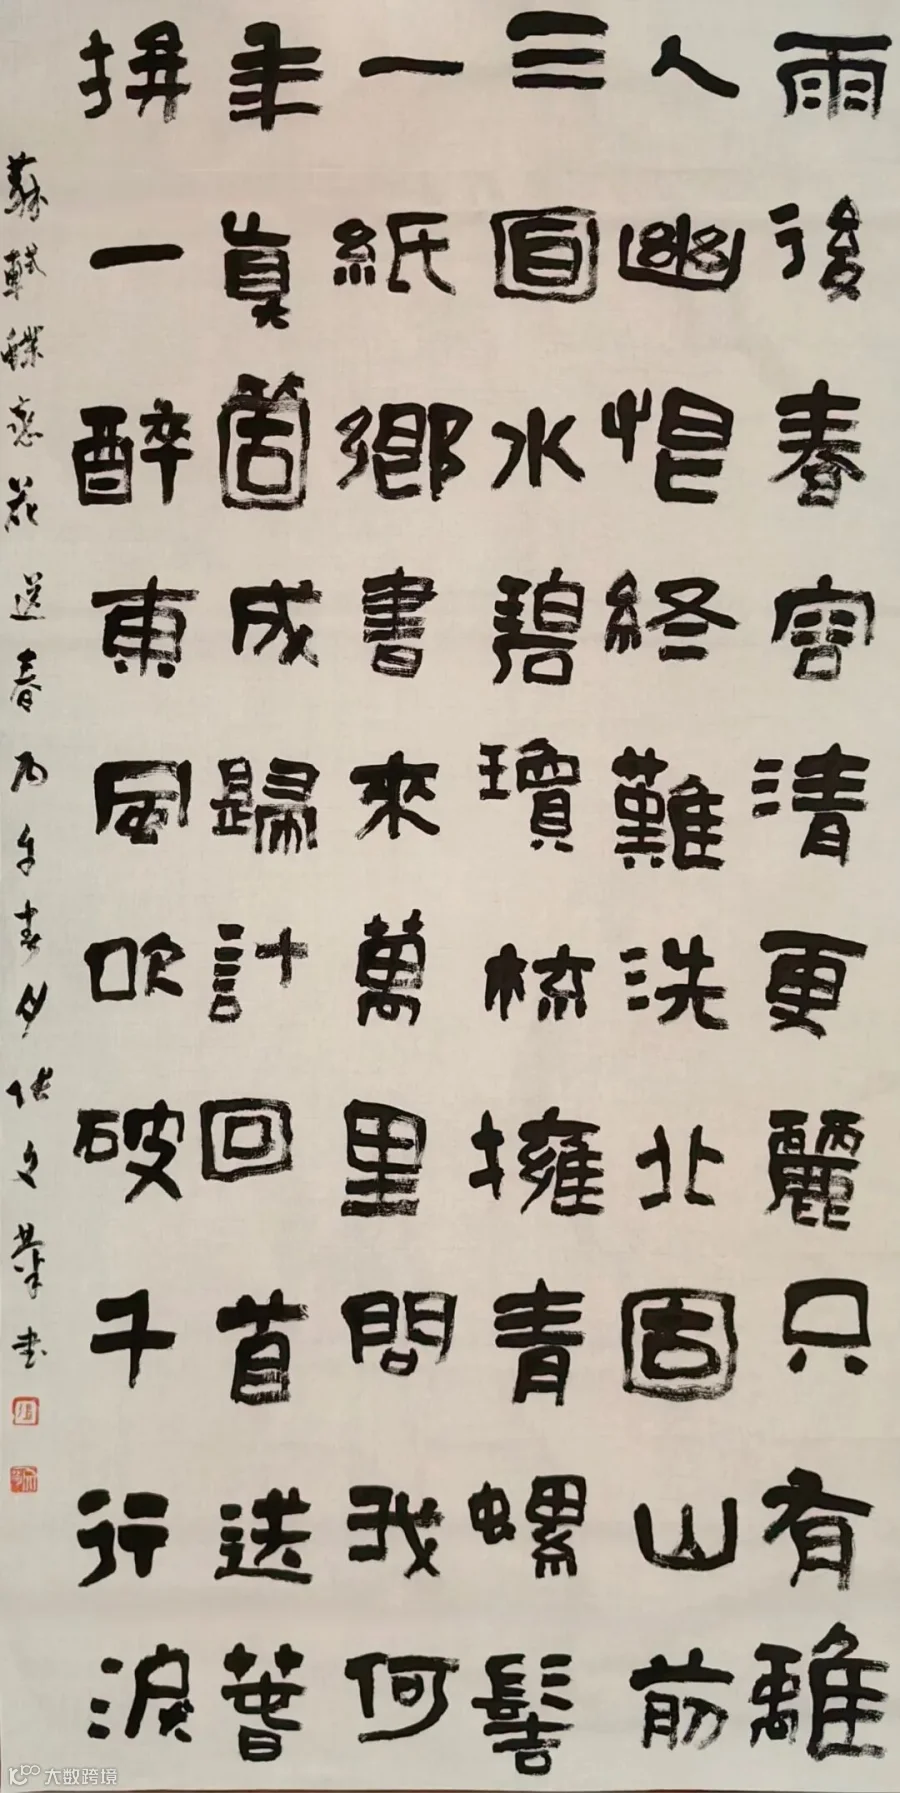 雨後春容清更麗只有離
人幽恨終難洗北固山前
三面水碧瓊梳擁青螺髻
一紙鄉書來萬里問我何
年真箇成歸計回首送春
拚一醉東風吹破千行淚
蘇軾蝶戀花送春丙午春夕张文華书
大数跨境